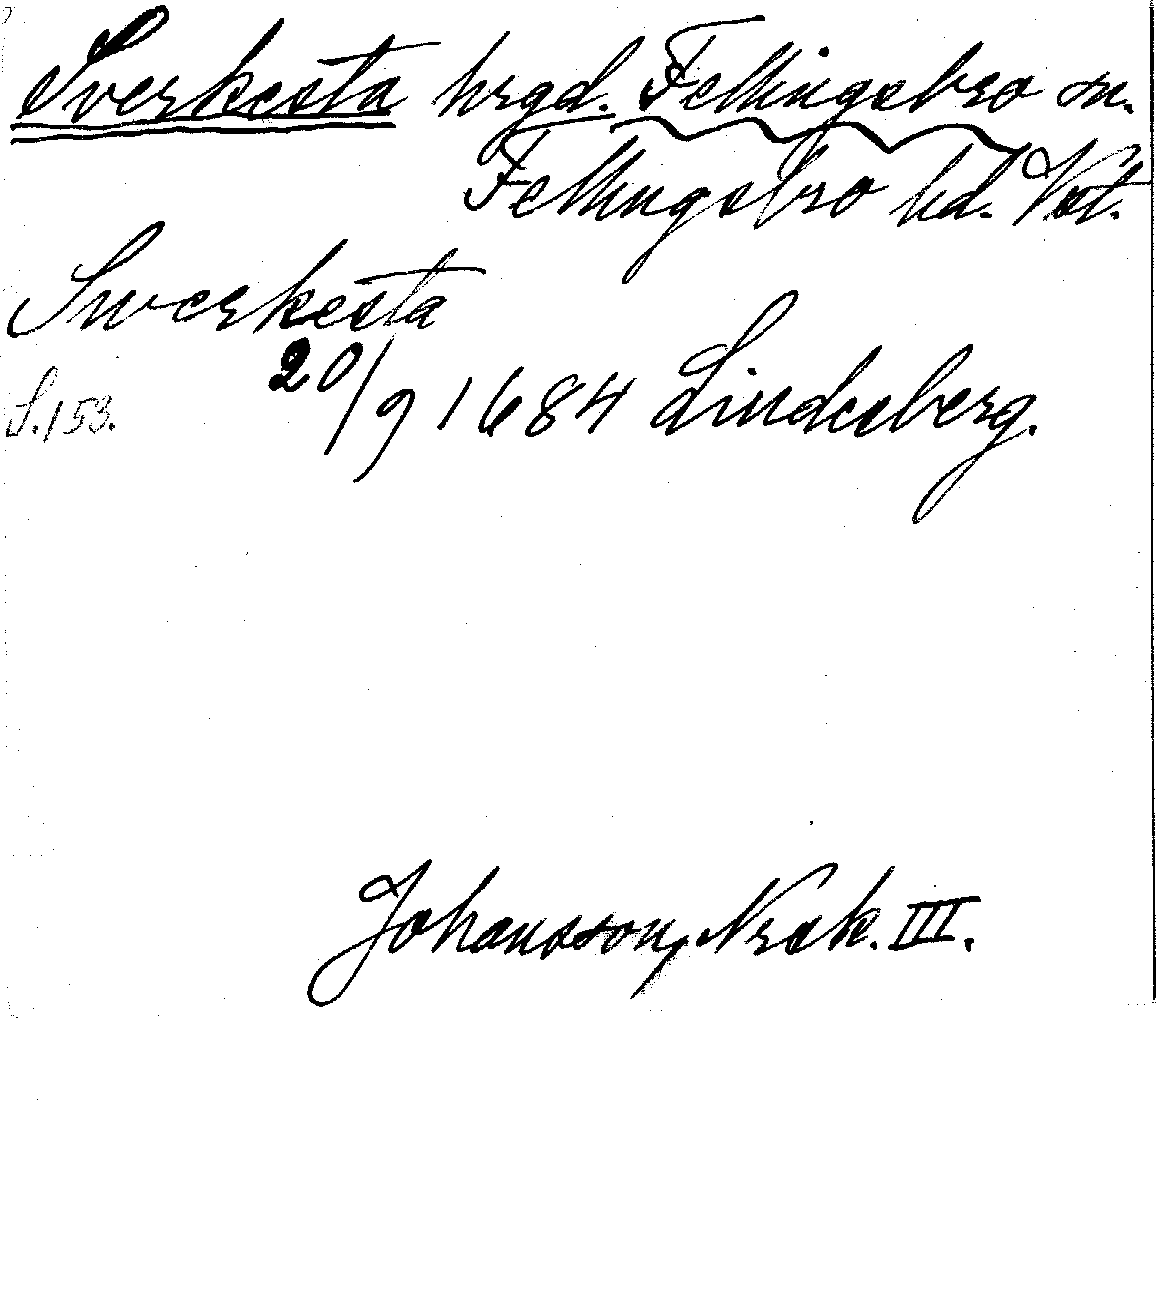 Sverkesta hrgd. Fellingsbro sn.
Fellingsbro hd. Vst.
Swerkesta
S. 153. 20/9 1684 Lindesberg.
Johansson, Nrsk. III.